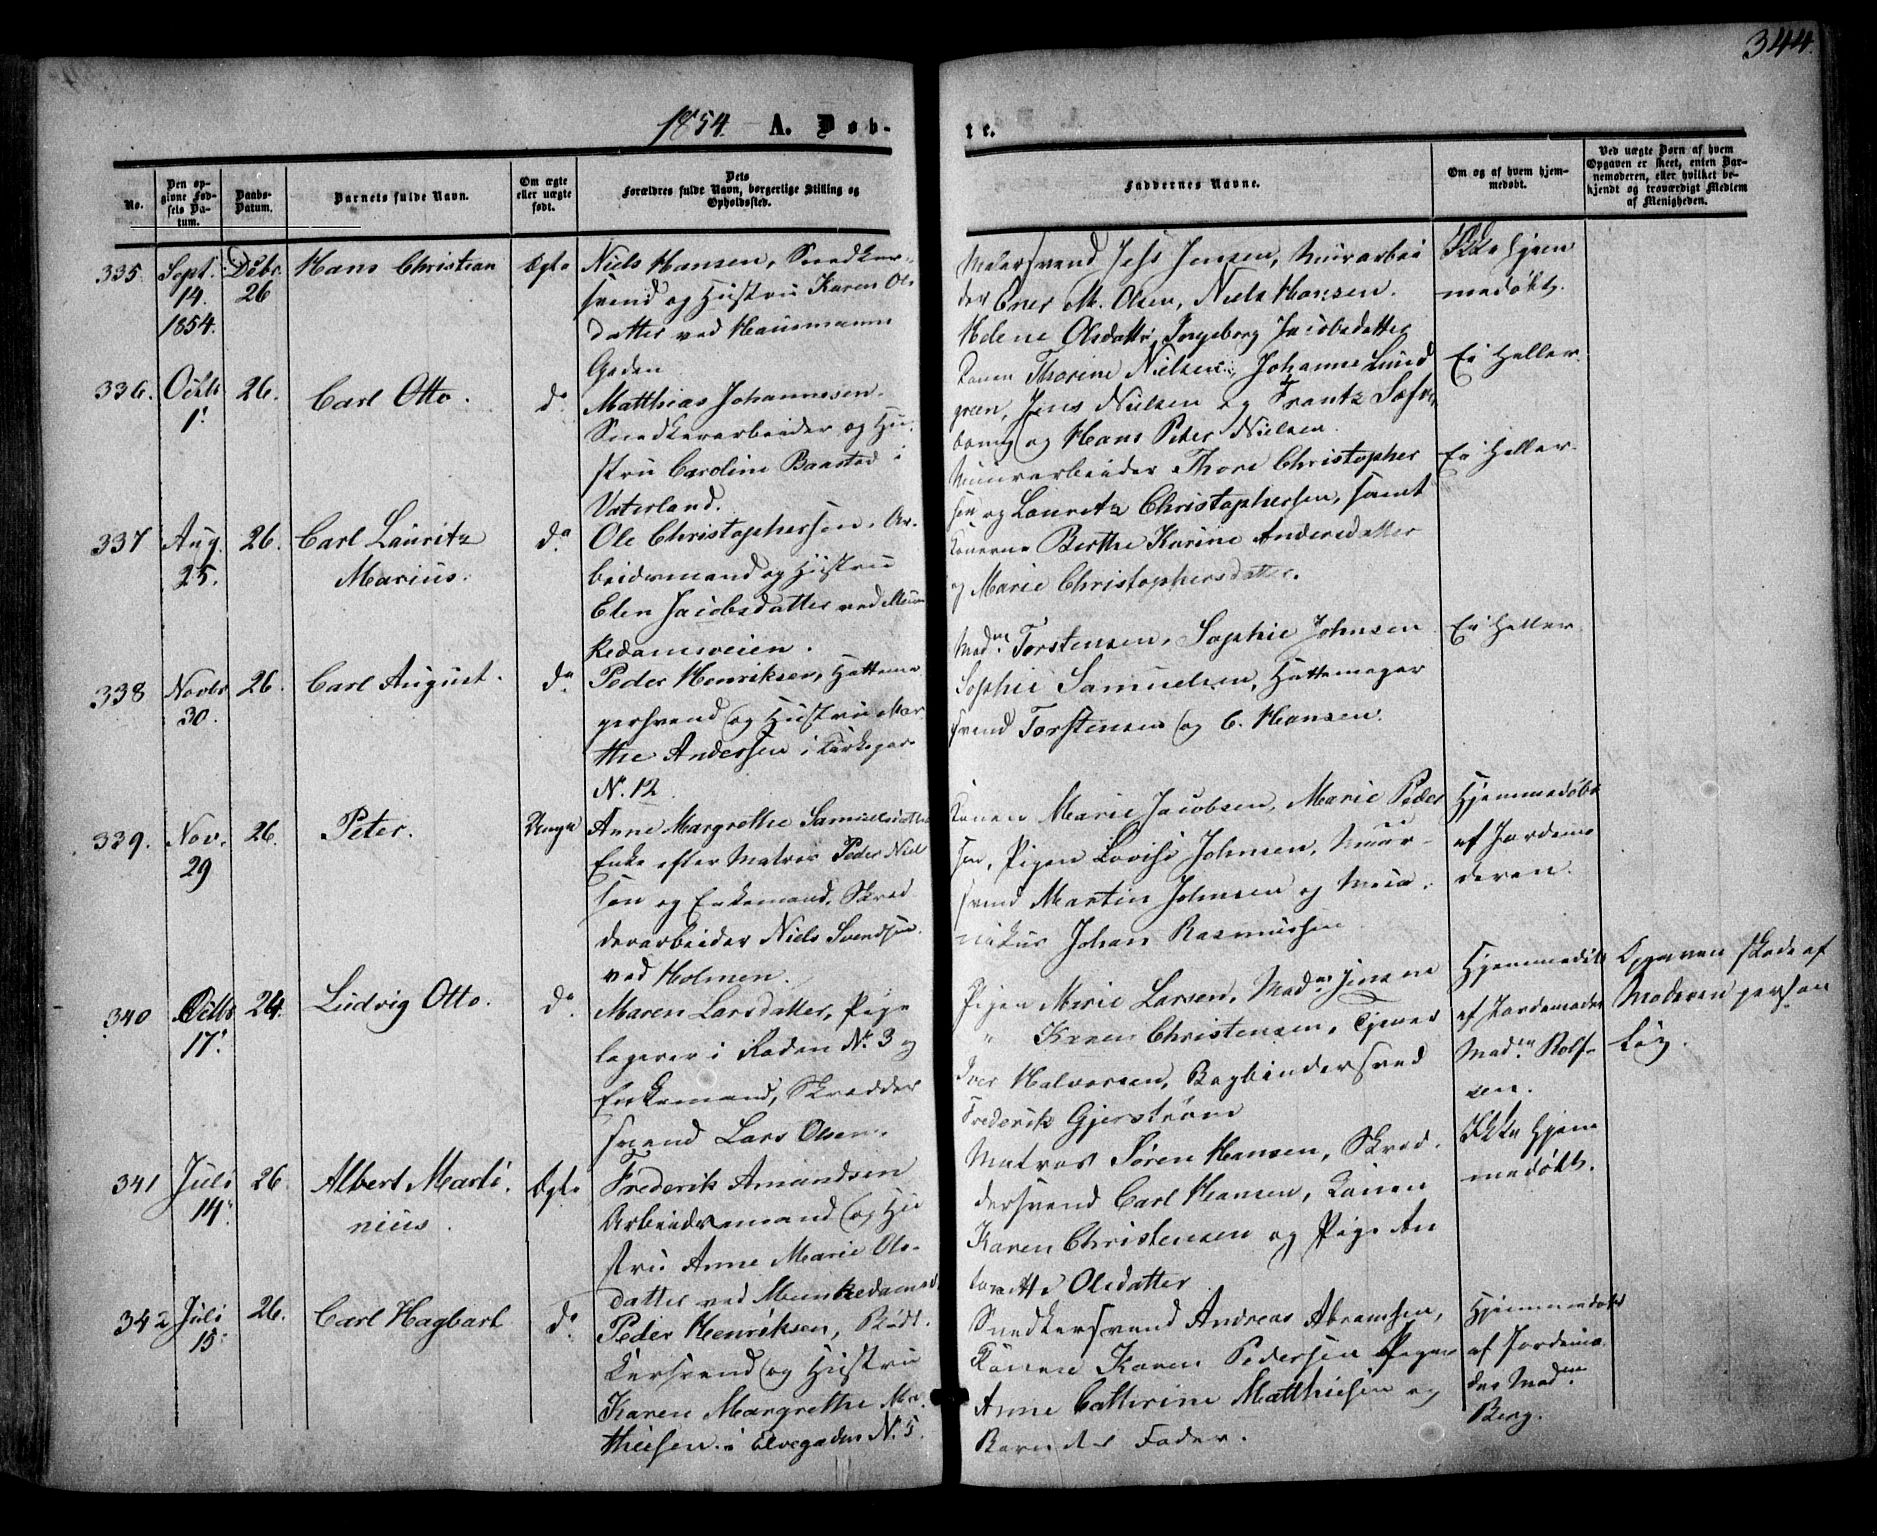 344.
1854. A. Døb-
te.
No.
Den opgivne Fødsels Datum.
Daabs-Datum.
Barnets fulde Navn.
Om ægte eller uægte født.
Dets Forældres fulde Navn, borgerlige Stilling og Opholdssted.
Faddernes Navne.
Om og af hvem hjemmedøbt.
Ved uægte Børn af hvem Opgaven er skeet, enten Barnemoderen, eller hvilket bekjendt og troværdigt Medlem af Menigheden.
335. Sept. 14. 1854. Debr. 26 Hans Christian Ægte
Niels Hansen, Snedker-
svend og Hustru Karen Ols
datter ved Hausmanns
Gaden
Malersvend Jens Jensen, Murarbei
der M. Olsen, Niels Hansen.
Helene Olsdatter, Ingeborg Jacobsdatter
Ikke hjem
medøbt.
336. Octbr 1. 26. Carl Otto. do
Matthias Johannesen.
Snedkerarbeider og Hu.
stru Caroline Baasted i
Vaterland.
Konen Thorine Nielsen, Johanne Lund
green, Jens Nielsen og Frantz
og Hans Peter Nielsen.
Ei heller.
337 Aug. 25. 26. Carl Lauritz
Marius. do
Ole Christophersen, Ar.
beidsmand og Hustru
Elen Jacobsdatter ved Mun
kedamsveien.
Muurarbeider Thore Christopher
sen og Lauritz Christophersen, samt
Konerne Berthe Karine Andersdatter
og Marie Christophersdatter.
Ei heller.
338 Novbr 30. 26. Carl August. do
Peder Henriksen, Hattema
gersvend og Hustru Mar
the Andersen i Kirkegar
N. 12
Madm Torstensen, Sophie Johnsen
Sophie Samuelsen, Hattemager
svend Torstensen og C. Hansen.
Ei heller.
339. Nov. 29 26. Peter. Uægte
Anne Margrethe Samuelsdatter
Enke efter Matros Peder Niel
sen og Enkemand, Skred
derarbeider Niels Svendsen.
ved Holmen.
Konen Marie Jacobsen, Marie Peder
sen, Pigen Lovise Johnsen, Muur-
svend Martin Johnsen og
Johan Rasmussen
Hjemmedøbt
af Jordemo
deren.
340 Octbr 17. 24. Ludvig Otto. do
Maren Larsdatter, Pige
logerer i Raden N. 3 og
Enkemand, Skredder
svend Lars Olsen.
Pigen Marie Larsen, Madm Jensen
" Karen Christensen, Tjener
Iver Halvorsen, Bogbindersvend
Frederik Gjerstrøm
Hjemmedøbt
af Jordemoder
Madm Rolf-
sen.
Opgaven skede af
Moderen person
lig.
341 Juli 14. 26. Albert Marti.
nius. Ægte
Frederik Amundsen
Arbeidsmand og Hu
stru Anne Marie Ols-
datter ved Munkedamsv
Matros Søren Hansen, Skred.
dersvend Carl Hansen, Konen
Karen Christensen og Pige An
tonette Olsdatter
Ikke hjem
medøbt.
342 Juli 15. 26. Carl Hagbart do
Peder Henriksen, Bødt.
kersvend og Hustru
Karen Margrethe Ma.
thiesen i Elvegaden N. 5.
Snedkersvend Andreas Abramsen,
Konen Karen Pedersen Pigen
Anne Cathrine Matthiesen og
Barnets Fader.
Hjemmedøbt
af Jordemo.
der Madm
Berg.